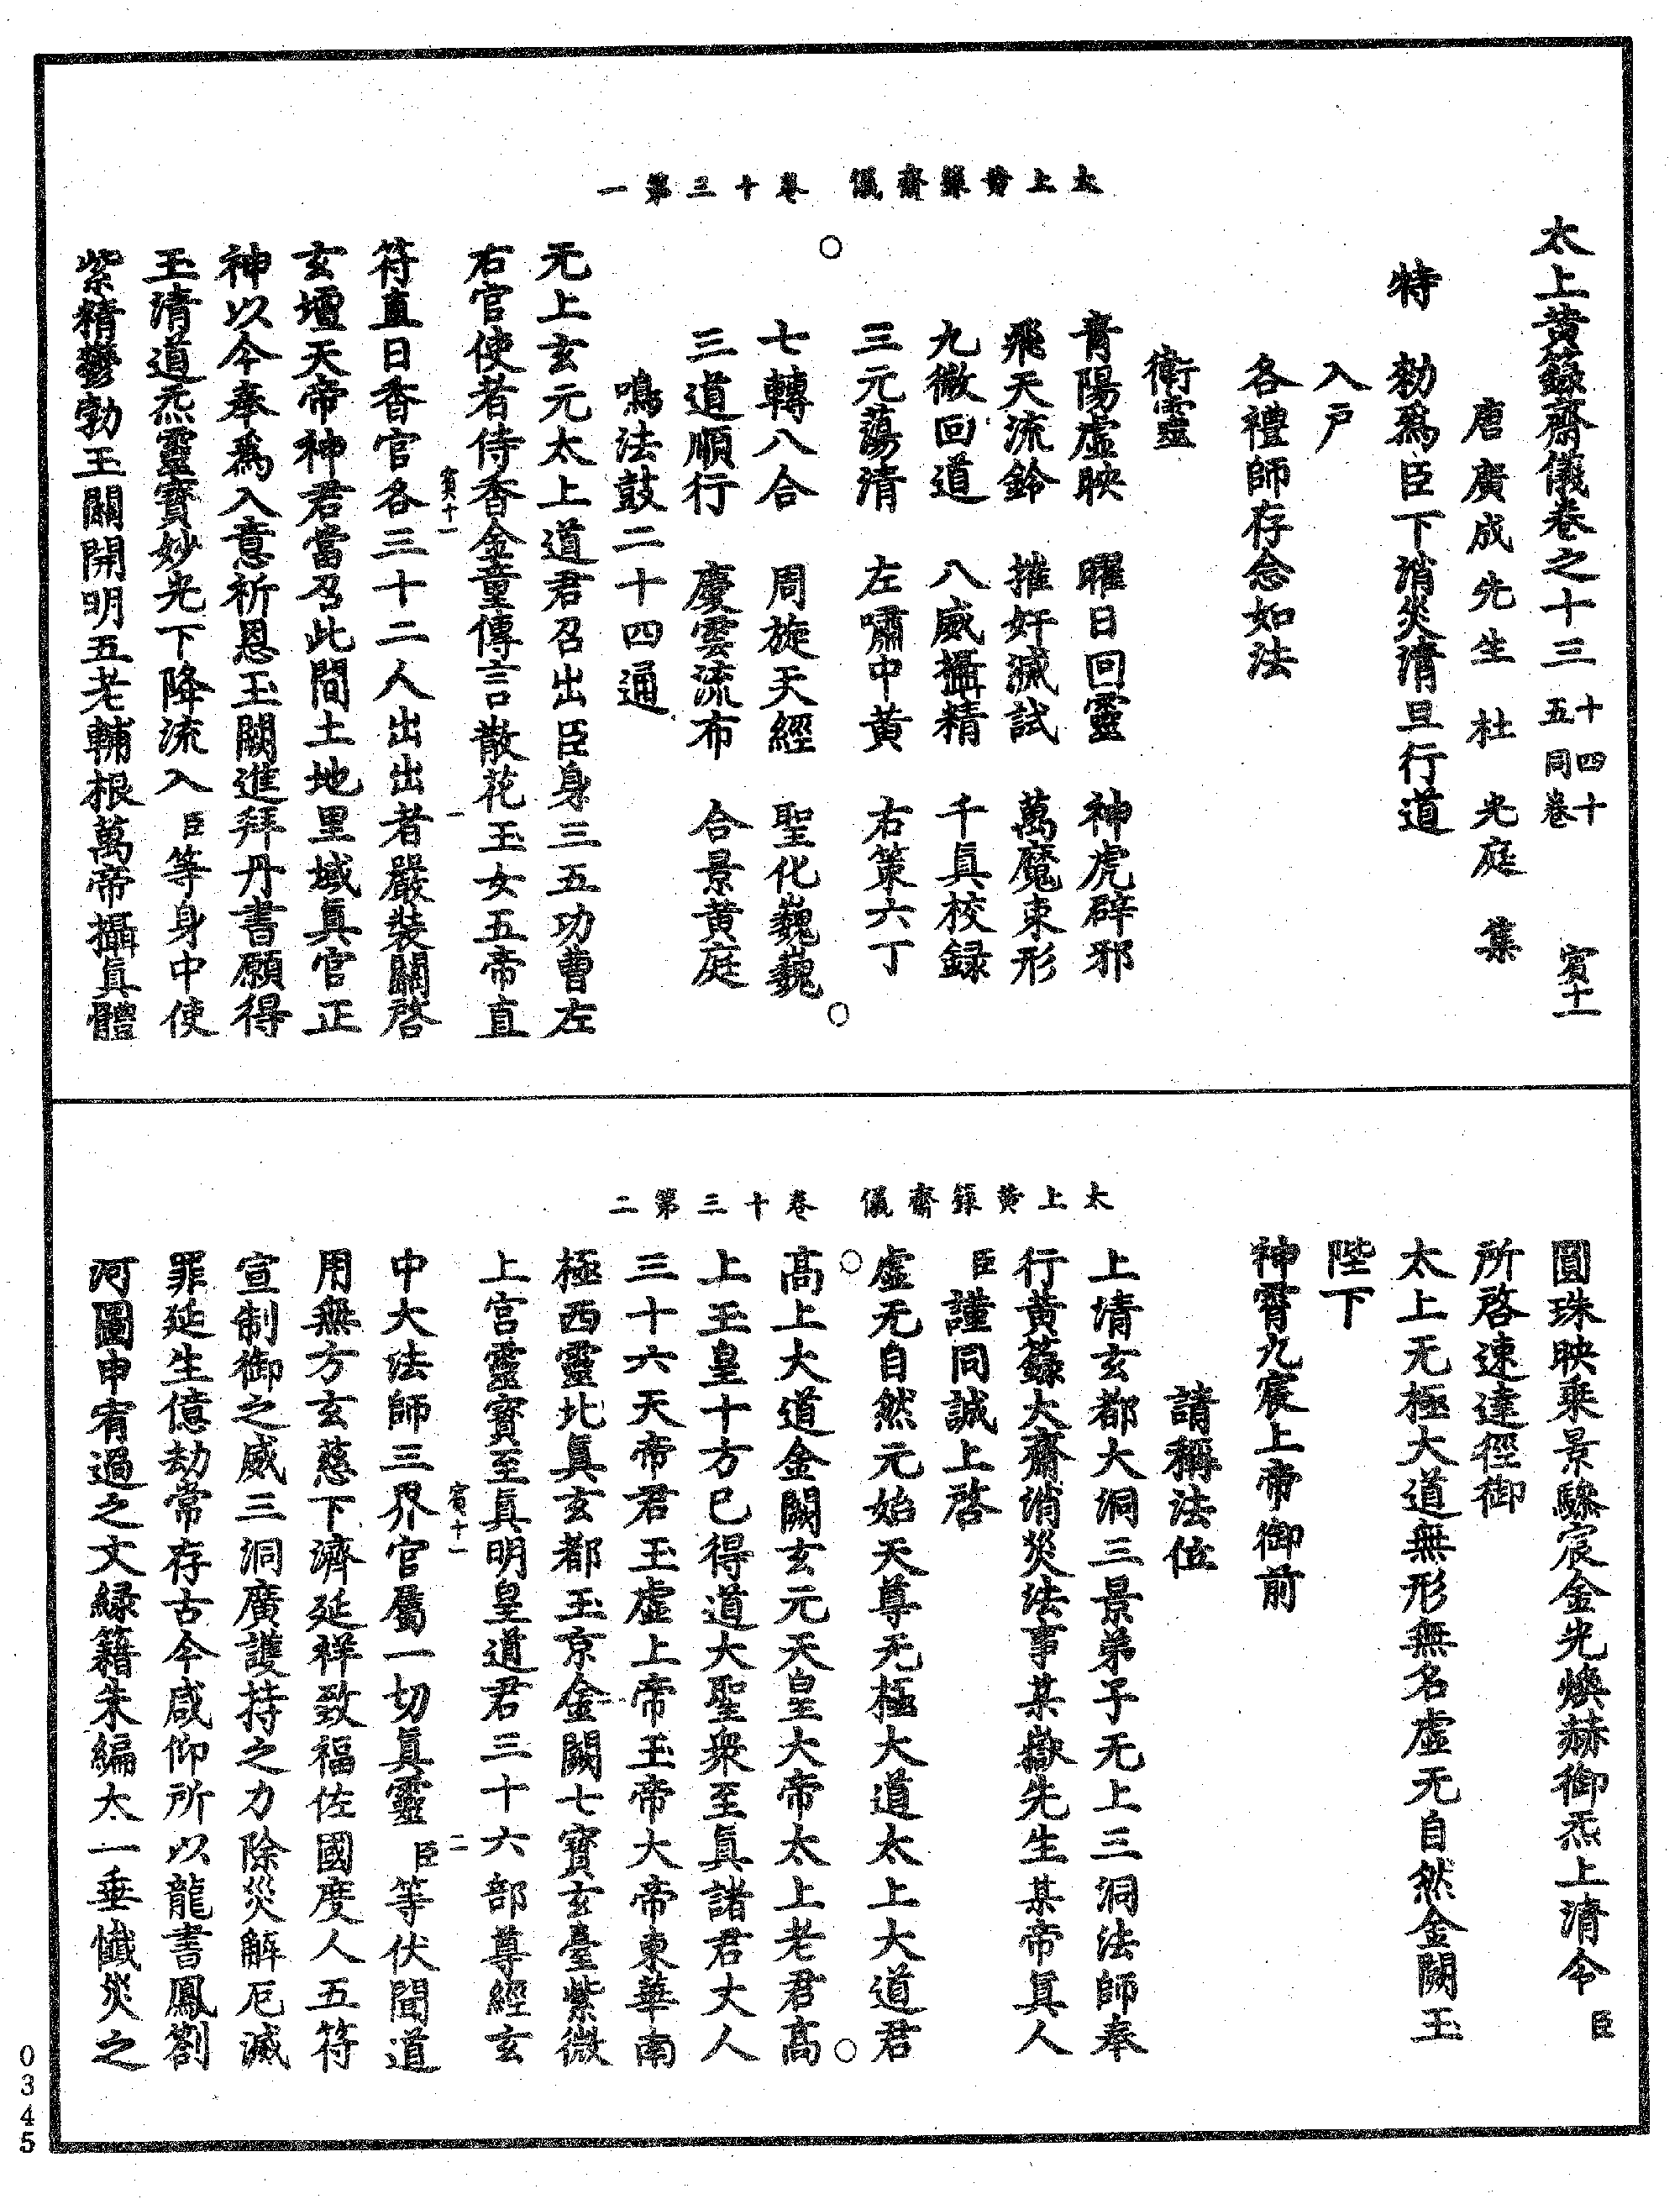 太上黃籙齋儀 卷十三第一
太上黃籙齋儀卷之十三 十四十五同卷 賓十一
唐廣成先生杜光庭 集
特 勑爲臣下消災清旦行道
入戶
各禮師存念如法
衛靈
青陽虛映 曜日回靈 神虎辟邪
飛天流鈴 摧奸滅試 萬魔束形
九微回道 八威攝精 千眞校錄
三元蕩清 左嘯中黃 右策六丁
七轉八合 周旋天經 聖化巍巍
三道順行 慶雲流布 合景黃庭
鳴法鼓二十四通
无上玄元太上道君召出臣身三五功曹左
右官使者侍香金童傳言散花玉女五帝直
賓十一 一
符直日香官各三十二人出出者嚴裝關啓
玄壇天帝神君當召此間土地里域眞官正
神以今奉爲入意祈恩玉闕進拜丹書願得
玉清道炁靈寳妙光下降流入臣等身中使
紫精鬱勃玉闢開明五老輔根萬帝攝眞體
太上黃籙齋儀 卷十三第二
圓珠映乘景驂宸金光煥赫御炁上清令臣
所啓速達徑御
太上无極大道無形無名虛无自然金闕玉
陛下
神霄九宸上帝御前
請稱法位
上清玄都大洞三景弟子无上三洞法師奉
行黃籙大齋消災法事某嶽先生某帝眞人
臣謹同誠上啓
虛无自然元始天尊无極大道太上大道君
高上大道金闕玄元天皇大帝太上老君高
上玉皇十方已得道大聖衆至眞諸君丈人
三十六天帝君玉虛上帝玉帝大帝東華南
極西靈北眞玄都玉京金闕七寳玄臺紫微
上宮靈寳至眞明皇道君三十六部尊經玄
賓十一 二
中大法師三界官屬一切眞靈臣等伏聞道
用無方玄慈下濟延祥致福佐國度人五符
宣制御之威三洞廣護持之力除災解厄滅
罪延生億劫常存古今咸仰所以龍書鳳劄
河圖申宥過之文綠籍朱編太一垂懺災之
0345